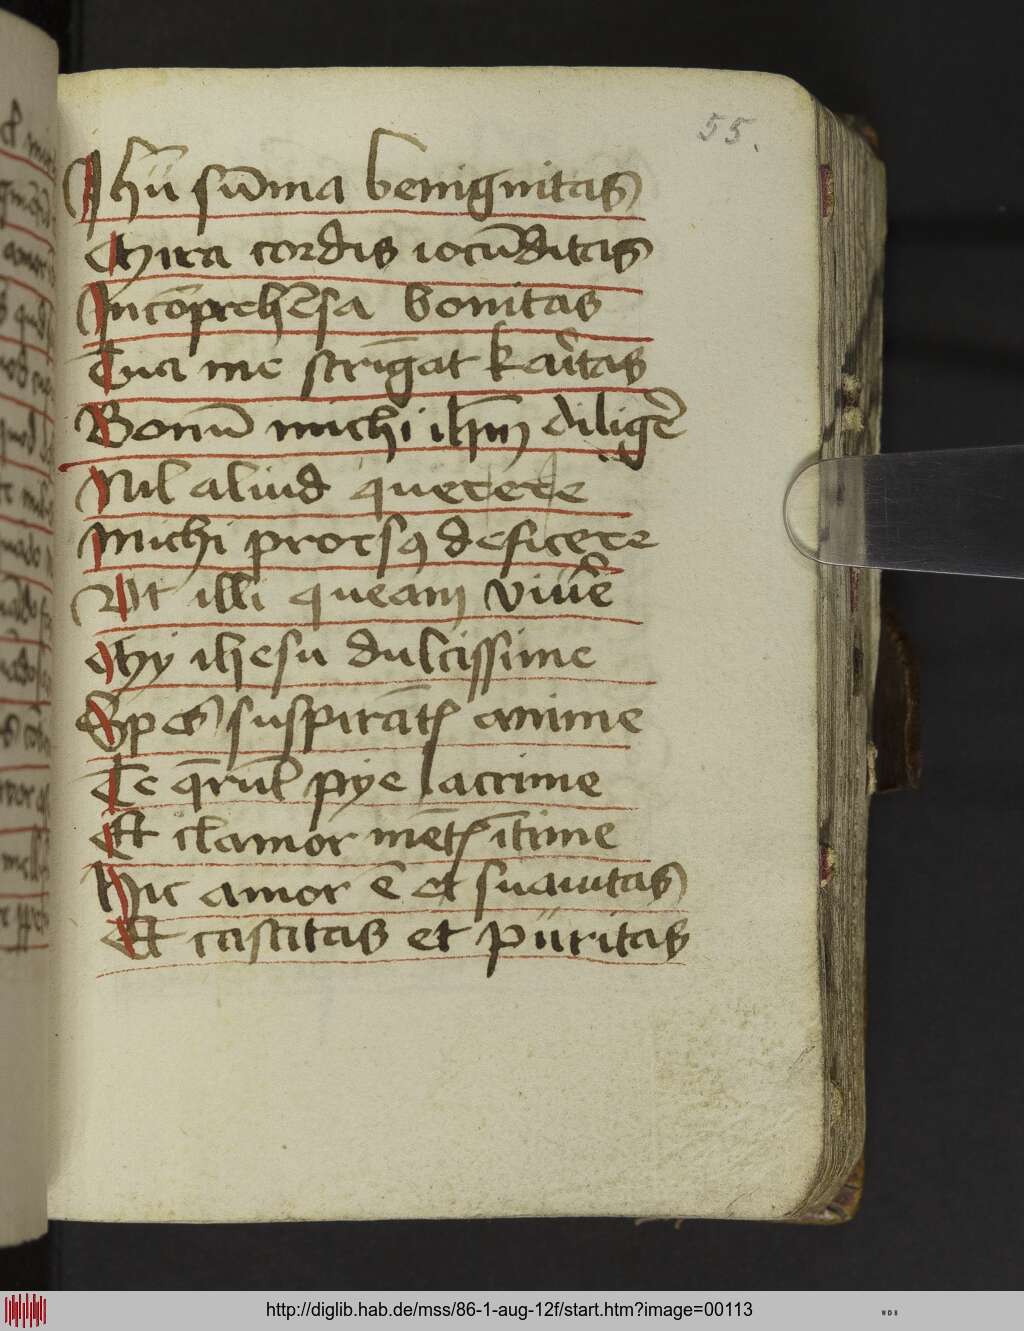 55.
Jhū sūma benignitas
Mira cordis iocūditas
Incōprehēsa bonitas
Tua me strīgat karitas
Bonū michi ihm̄ diligē
Nil aliud querere
Michi prorsꝰ deficere
Ut illi queam viuē
My ihesu dulcissime
Spes suspirātꝭ anime
Te q̄rūt pye lacrime
Et clamor mētꝭ ītime
Hic amor ē et suauitas
Et castitas et puritas
http://diglib.hab.de/mss/86-1-aug-12f/start.htm?image=00113